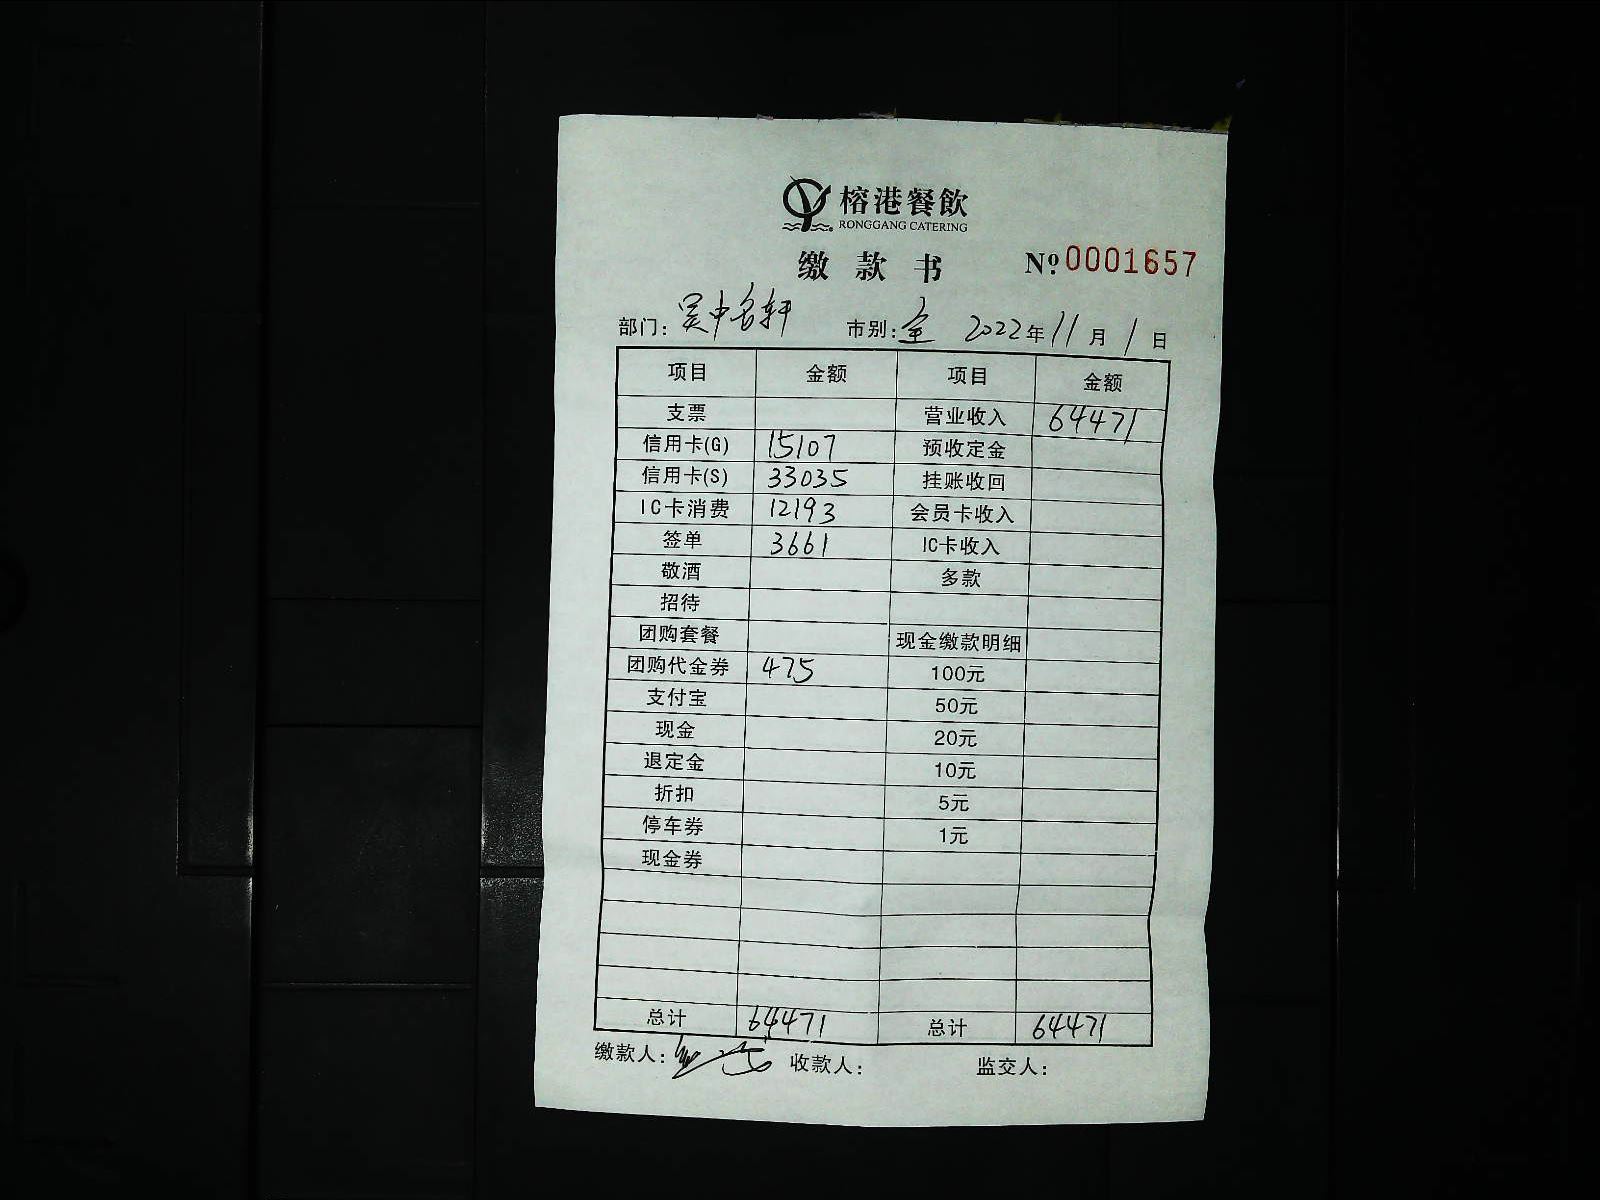 榕港餐飲
RONGGANG CATERING
缴款书 № 0001657
部门：吴中名轩 市别：全 2022年11月1日
项目 金额 项目 金额
支票 营业收入 64471
信用卡(G) 15107 预收定金
信用卡(S) 33035 挂账收回
IC卡消费 12193 会员卡收入
签单 3661 IC卡收入
敬酒 多款
招待
团购套餐 现金缴款明细
团购代金券 475 100元
支付宝 50元
现金 20元
退定金 10元
折扣 5元
停车券 1元
现金券
总计 64471 总计 64471
缴款人： 收款人： 监交人：